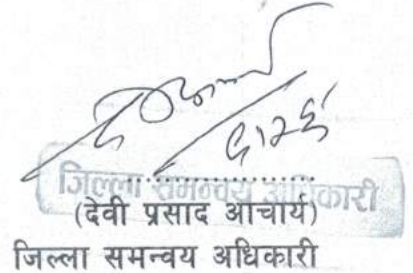 जिल्ला समन्वय अधिकारी
(देवी प्रसाद आचार्य)
जिल्ला समन्वय अधिकारी